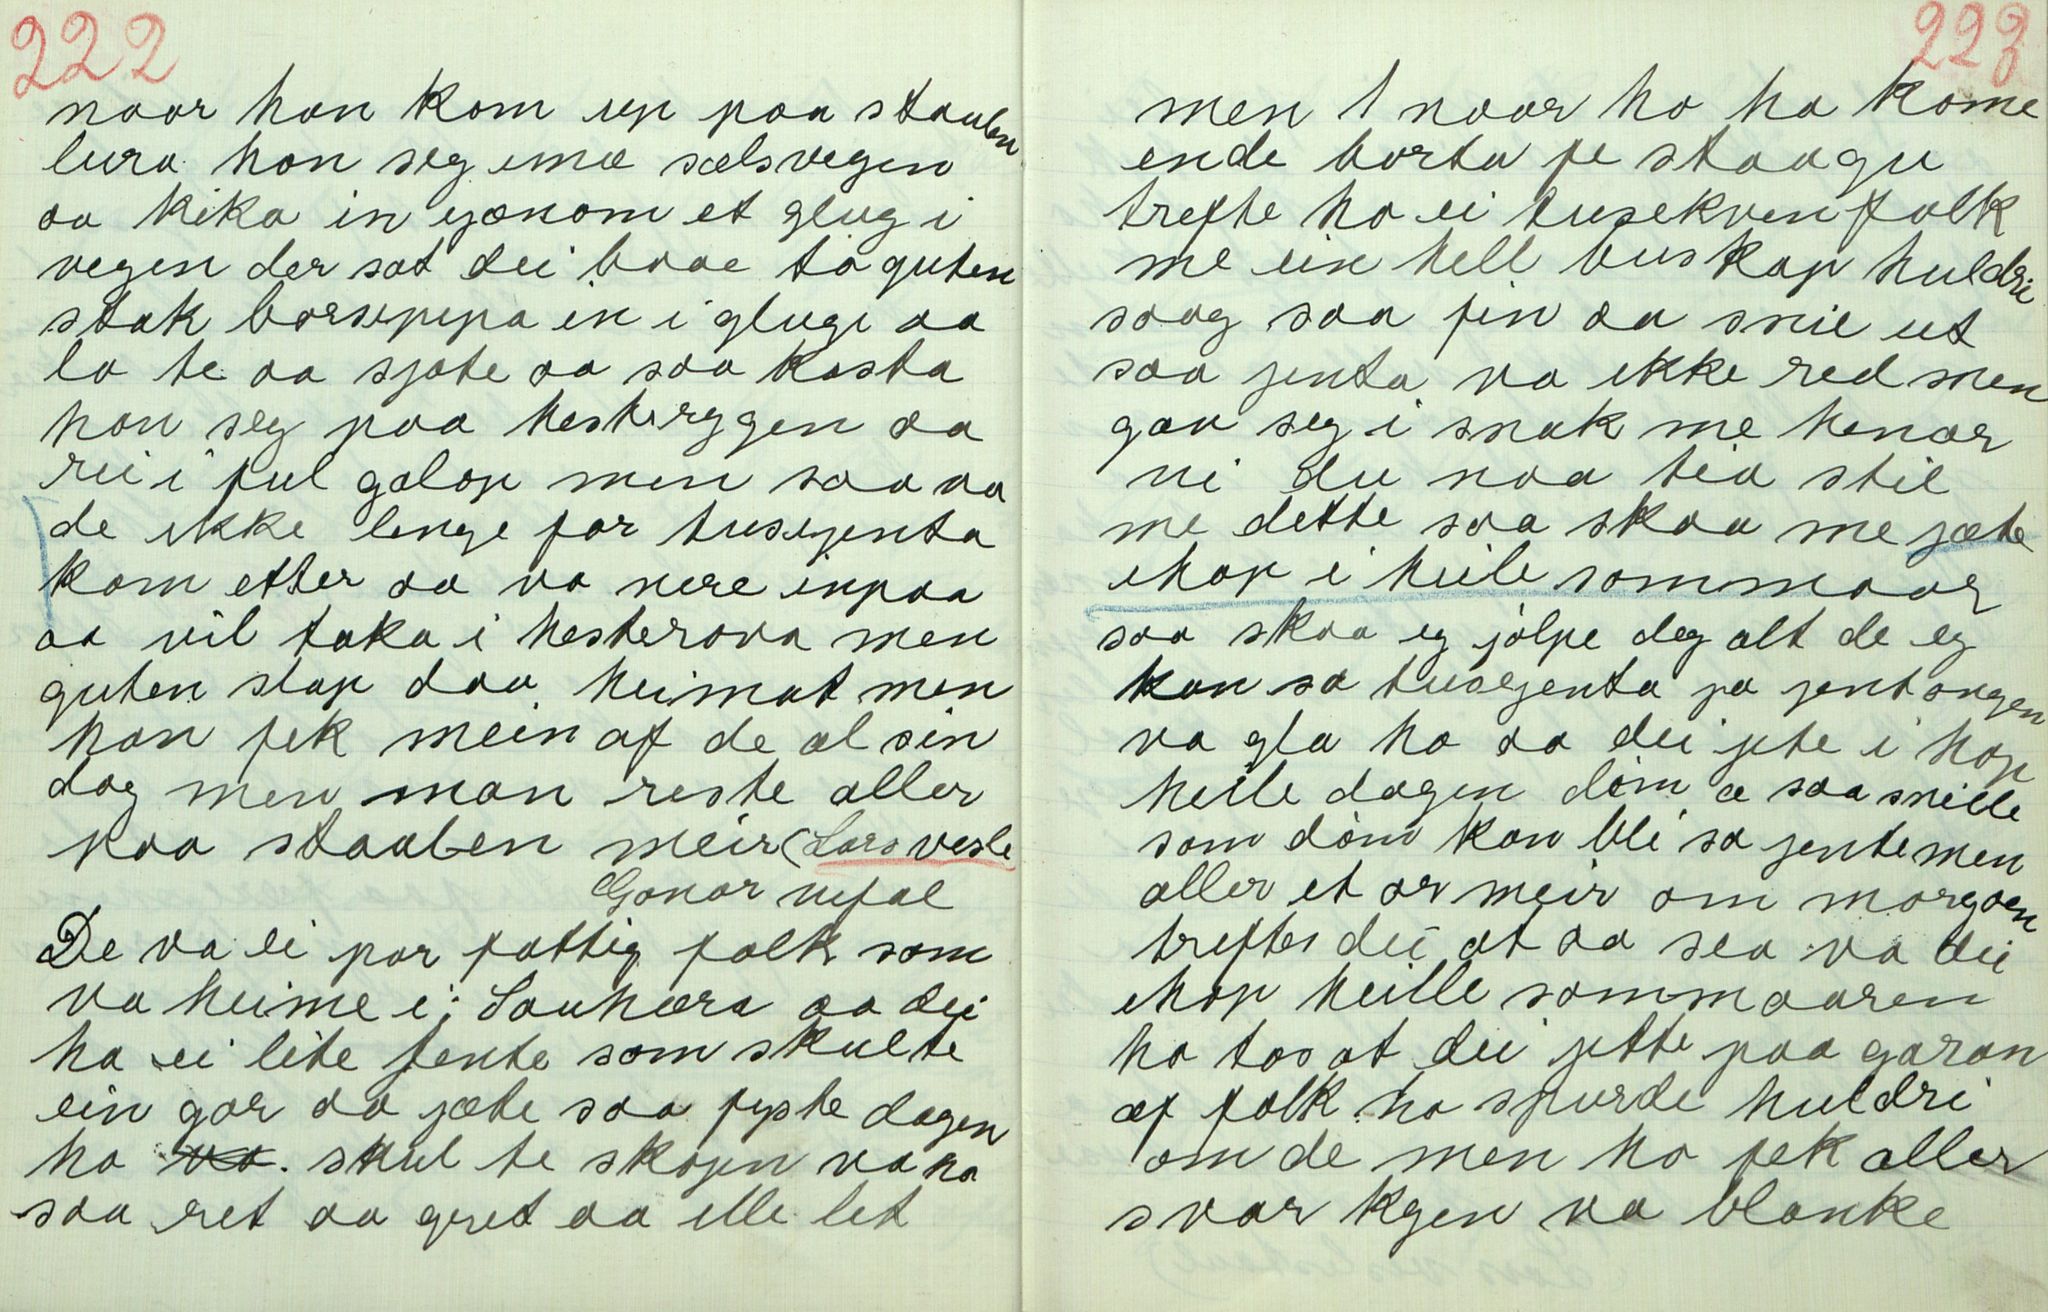 222
naar han kom up paa staulen
lura han seg imœ sœlsvegen
aa kika in gjœnom et glug i
vegen der sat dei baae to guten
stak borsepipa in i glugi aa
la te aa sjøte aa saa kasta
han seg paa hesteryggen aa
rei i ful galop men saa va
de ikke lenge før tusejenta
kom etter aa va nere inpaa
aa vil taka i hesterova men
guten slap daa heimat men
han fek mein af de al sin
dag men man reste aller
paa staalen meir (Lars vesle
Gonar nefal
De va ei par fattig folk som
va heime i Sauhœra aa dei
ha ei lite jente som skulte
ein gar aa jœte saa fyste dagen
ha va. skul te skogen va ho
saa ret aa gret aa ille let
223
men 1 naar ho ha kome
ende borta pe staagu
trefte ho ei tusekvenfolk
me ein hell buskap huldri
saag saa fin aa snil ut
saa jenta va ikke red men
gav seg i snak me henar
ni du naa tia stil
me dette saa skaa me jœte
ihop i heile sommaar
saa skaa eg jølpe deg alt de eg
kan sa tusejenta ja jentongen
va gla ho aa dei jete i hop
heile dagen døm œ saa snille
som døm kan bli sa jente men
aller et or meir om morgoen
treftes dei at aa sea va dei
ihop heille sommaaren
ho tos at dei jette paa garan
œf folk ho spurde huldri
om de men ho fek aller
svar kjen va blanke